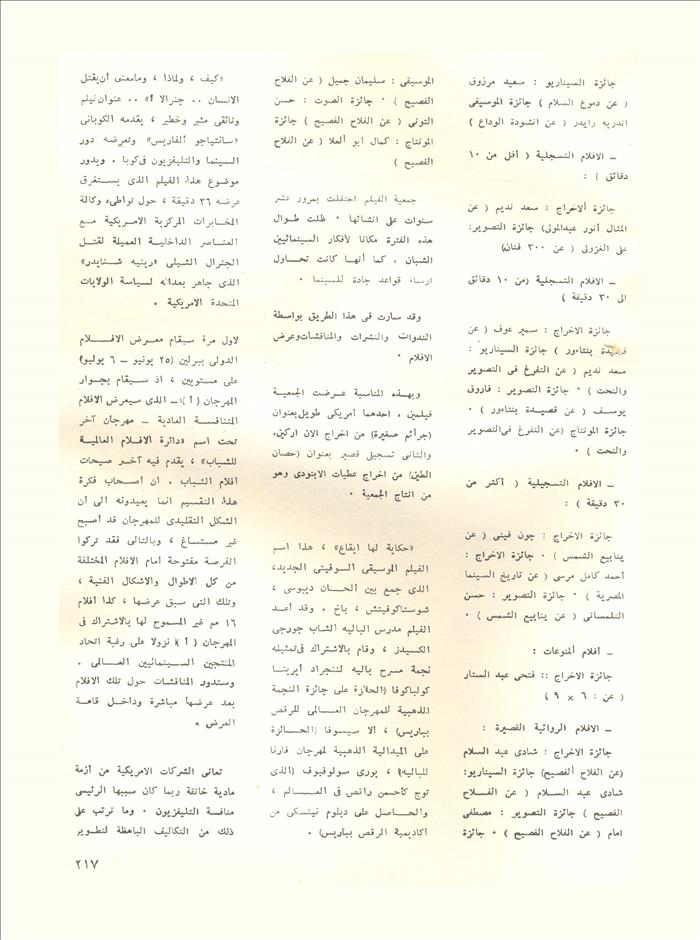 جائزة السيناريو : سعيد مرزوق
( عن دموع السلام ) جائزة الموسيقى
اندريه رايدر ( عن انشودة الوداع )
ـ الافلام التسجلية ( أقل من ١٠
دقائق ) :
جائزة الاخراج : سعد نديم ( عن
المثال أنور عبدالمولى) جائزة التصوير:
على الغزولى ( عن ٣٠٠ فنان)
ـ الافلام التسجلية (من ١٠ دقائق
الى ٣٠ دقيقة )
جائزة الاخراج : سمير عوف ( عن
قصيدة بنتاءور ) جائزة السيناريو :
سعد نديم ( عن التفرغ فى التصوير
والنحت ) ٠ جائزة التصوير : فاروق
يوسف ( عن قصيدة بنتاءور ) ٠
جائزة المونتاج (عن التفرغ فىالتصوير
والنحت ) ٠
ـ الافلام التسجيلية ( أكثر من
٣٠ دقيقة ) :
جائزة الاخراج : چون فينى ( عن
ينابيع الشمس ) ٠ جائزة الاخراج :
أحمد كامل مرسى ( عن تاريخ السينما
المصرية ) ٠ جائزة التصوير : حسن
التلمسانى ( عن ينابيع الشمس ) ٠
ـ أفلام المنوعات :
جائزة الاخراج :: فتحى عبد الستار
( عن : ٦ × ٩ )
ـ الافلام الروائية القصيرة :
جائزة الاخراج : شادى عبد السلام
(عن الفلاح الفصيح) جائزة السيناريو:
شادى عبد السلام ( عن الفلاح
الفصيح ) جائزة التصوير : مصطفى
امام ( عن الفلاح الفصيح ) ٠ جائزة
الموسيقى : سليمان جميل ( عن الفلاح
الفصيح ) ٠ جائزة الصوت : حسن
التونى ( عن الفلاح الفصيح ) جائزة
المونتاج : كمال أبو العلا ( عن الفلاح
الفصيح )
جمعية الفيلم احتفلت بمرور عشر
سنوات على انشائها ٠ ظلت طوال
هذه الفترة مكانا لأفكار السينمائيين
الشبان ، كما أنها كانت تحاول
ارساء قواعد جادة للسينما ٠
وقد سارت فى هذا الطريق بواسطة
الندوات والنشرات والمناقشاتوعرض
الافلام ٠
وبهذه المناسبة عرضت الجمعية
فيلمين ، احدهما أمريكى طويل بعنوان
(جرائم صغيرة) من اخراج الان اركين،
والثانى تسجيلى قصير بعنوان (حصان
الطين) من اخراج عطيات الابنودى وهو
من انتاج الجمعية ٠
«حكاية لها ايقاع» ، هذا اسم
الفيلم الموسيقى السوفيتى الجديد،
الذى جمع بين ألحان ديبوسى ،
شوستاكوفيتش ، باخ ٠ وقد أعد
الفيلم مدرس الباليه الشاب جورجى
الكسيدز ، وقام بالاشتراك فىتمثيله
نجمة مسرح باليه لننجراد أيرينا
كولباكوفا (الحائزة على جائزة النجمة
الذهبية للمهرجان العالمى للرقص
بباريس) ، ألا سيسوفا (الحائزة
على الميدالية الذهبية لمهرجان فارنا
للباليه) ، يورى سولوفيوف (الذى
توج كأحسن راقص فى العالم ،
والحاصل على دبلوم نيتسكى من
أكاديمية الرقص بباريس) ٠
«كيف ، ولماذا ، ومامعنى أن يقتل
الانسان .. جنرالا أ» .. عنوانفيلم
وثائقى مثير وخطير ، يقدمه الكوبانى
«سانتياجو ألفاريس» وتعرضه دور
السينما والتليفزيون فىكوبا . ويدور
موضوع هذا الفيلم الذى يستغرق
عرضه ٣٦ دقيقة ، حول تواطىء وكالة
المخابرات المركزية الامريكية مع
العناصر الداخلية العميلة لقتل
الجنرال الشيلى «رينيه شنايدر»
الذى جاهر بعدائه لسياسة الولايات
المتحدة الامريكية ٠
لاول مرة سيقام معرض الافلام
الدولى ببرلين (٢٥ يونيو ـ ٦ يوليو)
على مستويين ، اذ سيقام بجوار
المهرجان ( أ )ـ الذى سيعرض الافلام
المتنافسة العادية ـ مهرجان آخر
تحت اسم «دائرة الافلام العالمية
للشباب» ، يقدم فيه آخر صيحات
أفلام الشباب . ان أصحاب فكرة
هذا التقسيم انما يعيدونه الى أن
الشكل التقليدى للمهرجان قد أصبح
غير مستساغ ، وبالتالى فقد تركوا
الفرصة مفتوحة أمام الافلام المختلفة
من كل الاطوال والاشكال الفنية ،
وتلك التى سبق عرضها ، كذا أفلام
١٦ مم غير المسموح لها بالاشتراك فى
المهرجان ( أ ) نزولا على رغبة اتحاد
المنتجين السينمائيين العالمى .
وستدور المناقشات حول تلك الافلام
بعد عرضها مباشرة وداخل قاعة
العرض ٠
تعانى الشركات الامريكية من أزمة
مادية خانقة ربما كان سببها الرئيسى
منافسة التليفزيون ٠ وما ترتب على
ذلك من التكاليف الباهظة لتطوير
٢١٧